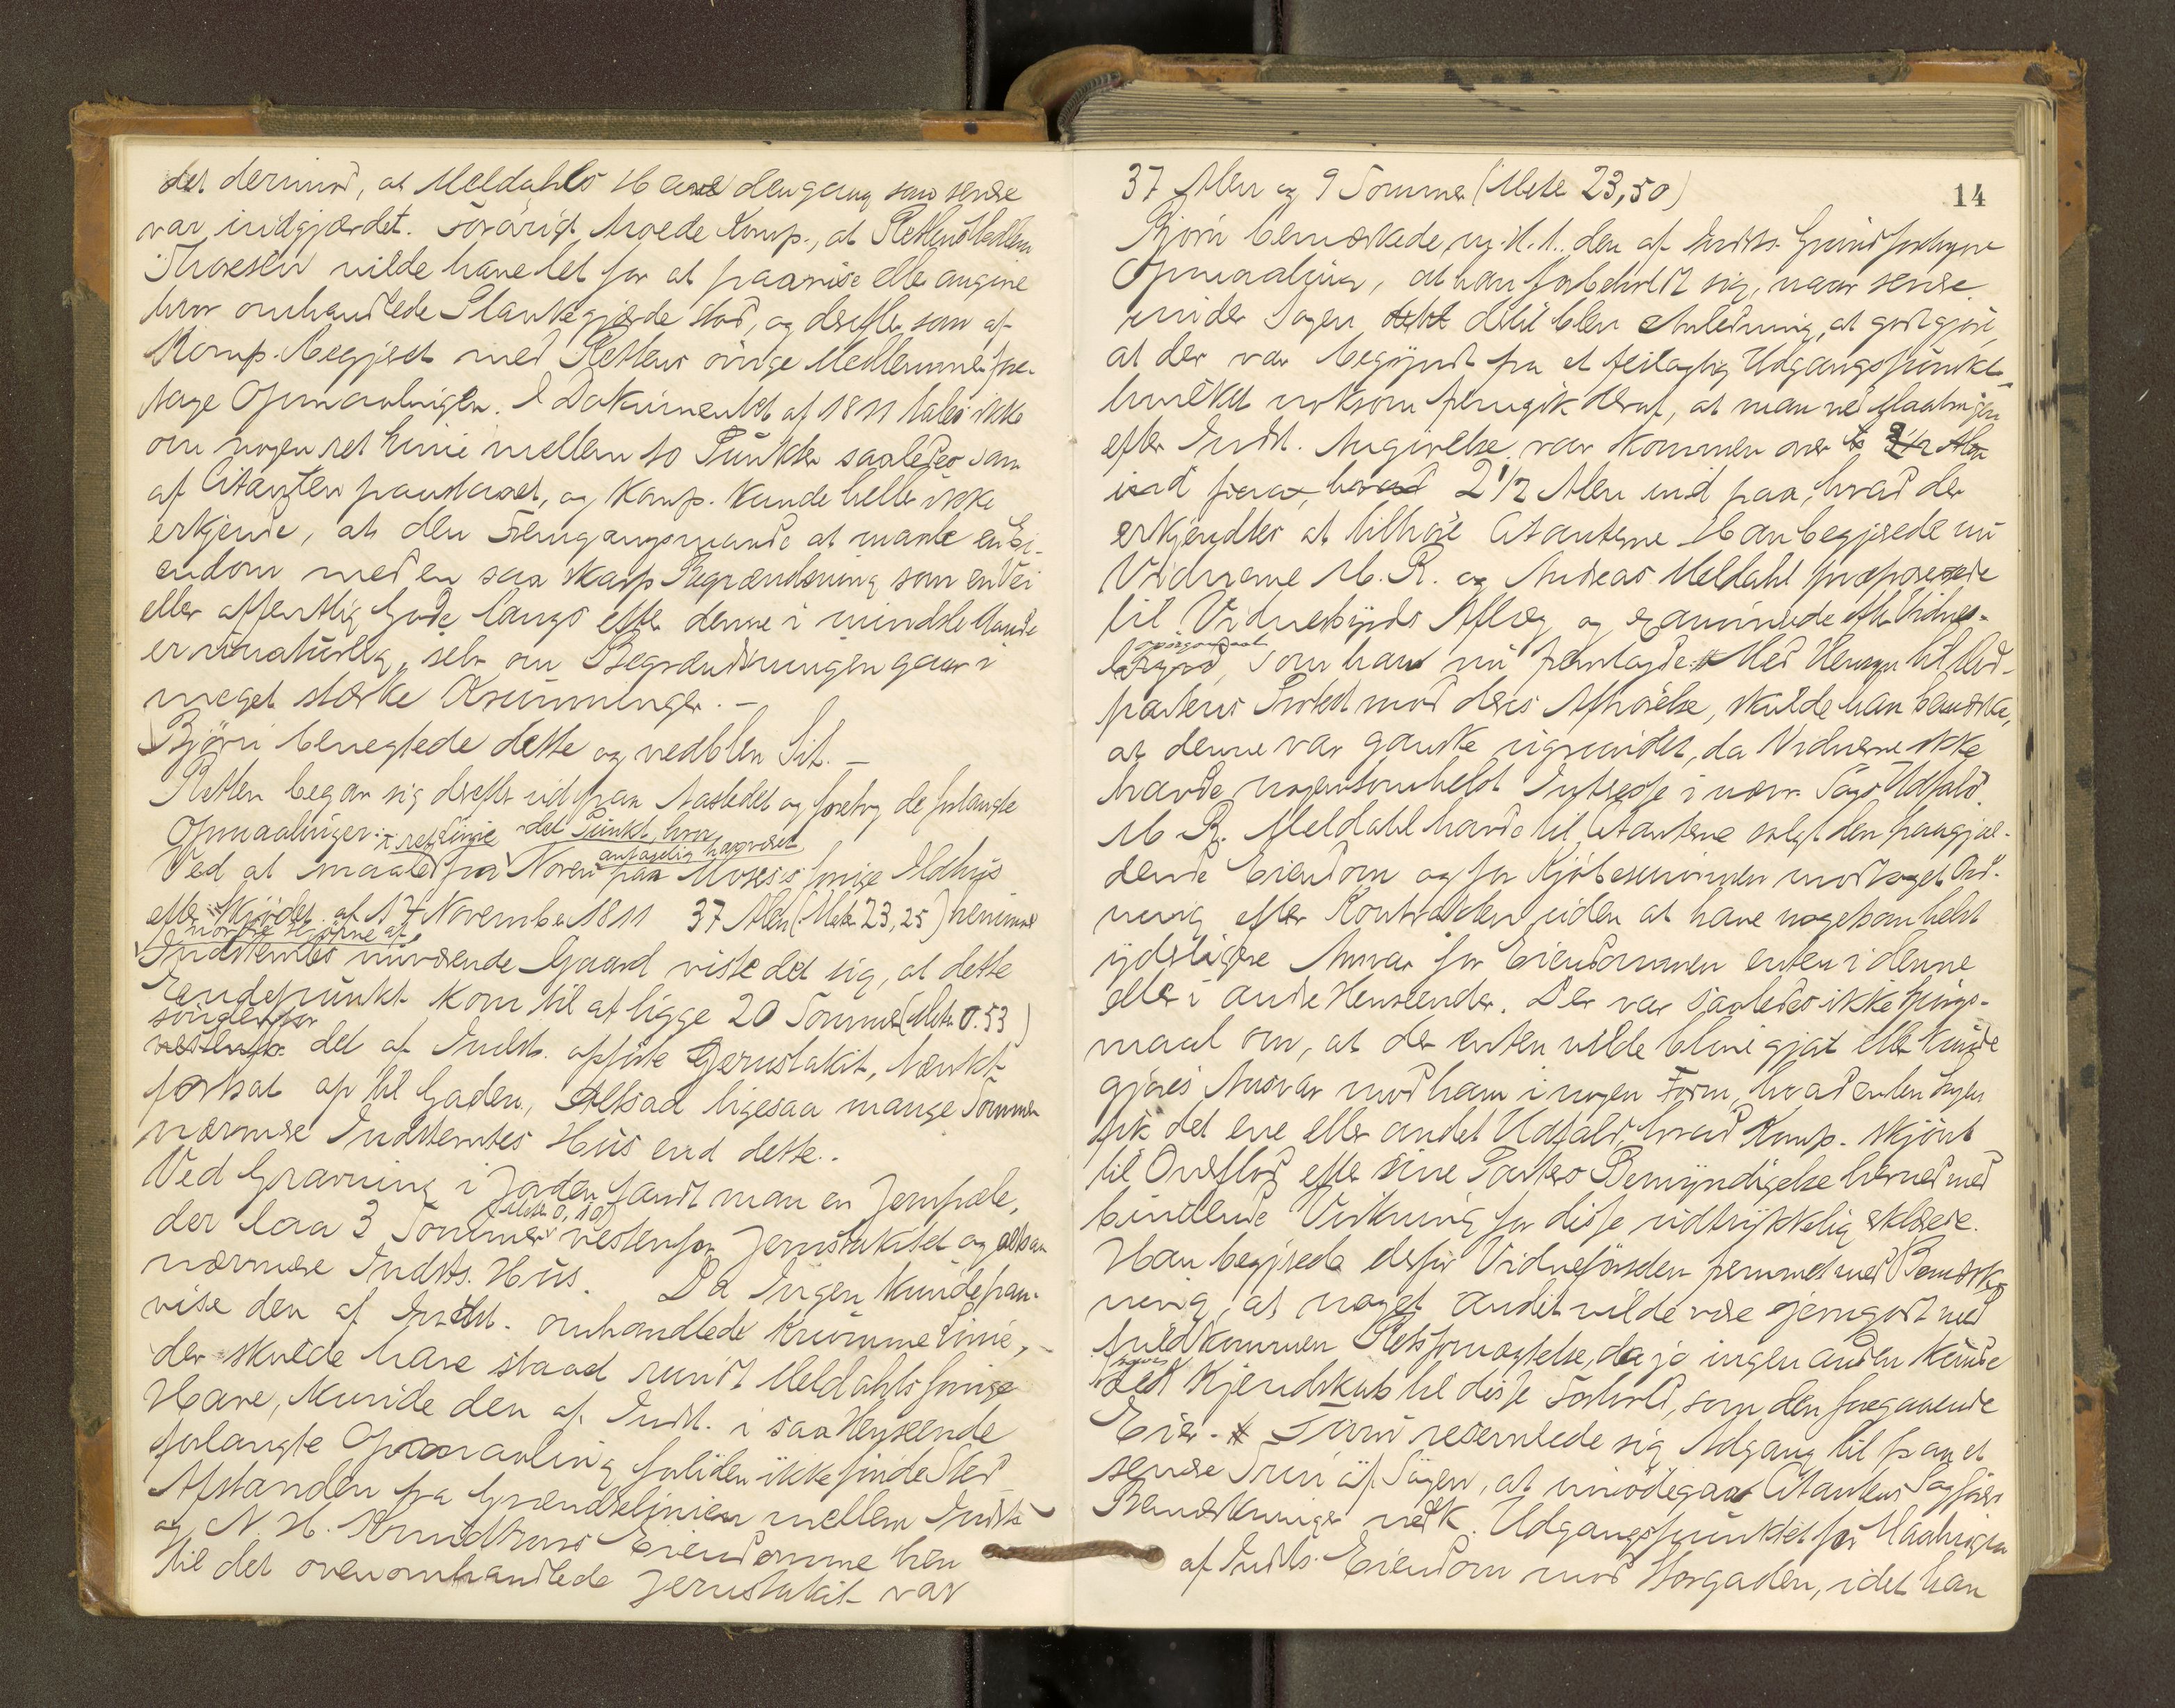 det derimod, at Meldahls Have dengang som senere
var indgjærdet. Forøvrigt troede Komp., at Rettens Medlem
Thoresen vilde have let for at paavise eller angive
hvor omhandlede Plankegjærde stod, og derefter som af
Komp. begjært med Rettens øvrige Medlemmer fore-
tage Opmaalingen. I Dokumentet af 1811 tales ikke
om nogen ret Linie mellem to Punkter saaledes som
af Citanten paastaaet, og Komp. kunde heller ikke
erkjende, at den Fremgangsmaade at maale en Ei-
endom med en saa skarp Begrændsning som en Vei
eller offentlig Gade langs efter denne i mindste Maade
er unaturlig, selv om Begrændsningen gaar i
meget stærke Krumninger. —
Bjørn benegtede dette og vedblev Sit. —
Retten begav sig derefter ud paa Aastedet og foretog de forlangte
Opmaalinger. i ret Linie det Punkt, hvor
Ved at maale fra Noren paa antagelig har været Moses's forrige Ildhus
efter Skjødet af 14 November 1811 37 Alen (Meter 23,25) henimod
nordre Hjørne af
Indstevntes nuværende Gaard viste det sig, at dette
Endepunkt kom til at ligge 20 Tommer (Met. 0.53)
søndenfor
vestenfor det af Indst. opførte Jernstakit, tænkt
fortsat op til Gaden, altsaa ligesaa mange Tommer
nærmere Indstevntes Hus end dette.
Ved Gravning i Jorden fandt man en Jernpæle,
(Meter 0,10)
der laa 3 Tommer vestenfor Jernstakitet og altsaa
nærmere Indsts. Hus. Da Ingen kunde paa-
vise den af Indst. omhandlede Krumme Linie,
der skulde have staaet rundt Meldahls forrige
Have, kunde den af Indst. i saa Henseende
forlangte Opmaaling forliden ikke finde Sted
Afstanden fra Grændselinien mellem Indsts
og N. H. Knudtzons Eiendomme hen
til det ovenomhandlede Jernstakit var
14
37 Alen og 9 Tommer (Meter 23,50)
Bjørn bemærkede, ng. H. t. den af Indsts. Grund foretagne
Opmaaling, at han forbeholdt sig, naar senere
under Sagen dertil blev Anledning, at godtgjøre,
at der var begyndt fra et feilagtig Udgangspunkt
hvilket noksom fremgik deraf, at man ved Maalingen
efter Indst. Angivelse var kommen over to 2 1/2 Alen
ind paa, hvad 2 1/2 Alen ind paa, hvad der
erkjendtes at tilhøre Citanterne Han begjærede nu
Vidnerne M. R. og Andreas Meldahl præposerede
til Vidnesbyrds Aflæg og examinerede efter Vidnes-
som han nu fremlagde. # Med Hensyn til Mod-
partens Protest mod deres Afhørelse, skulde han bemærke,
at denne var ganske ugrundet, da Vidnerne ikke
havde nogensomhelst Interesse i nærv. Sags Udfald.
M. R. Meldahl havde til Citanterne solgt den paagjæl-
dende Eiendom og for Kjøbesummen modtaget Ord-
ning efter Kontrakten uden at have nogetsomhelst
yderligere Ansvar for Eiendommen enten i denne
eller i andre Henseender. Der var saaledes ikke Spørgs-
maal om, at der enten vilde blive gjort eller kunde
gjøres Ansvar mod ham i nogen Form, hvad enten Sagen
fik det ene eller andet Udfald, hvad Komp. skjønt
til Overflod efter sine Parters Bemyndigelse herved med
bindende Virkning for disse udtrykkelig erklærede.
Han begjærede derfor Vidneførselen fremmet med Bemærk-
ning, at noget andet vilde være ensgjort med
fuldkommen Retsfornægtelse, da jo ingen anden kunde
have
det Kjendskab til disse Forhold, som den foregaaende
Eier. # Thun reserverede sig Adgang til paa et
senere Trin af Sagen, at imødegaa Citantens Sagførers
Bemærkninger vedk. Udgangspunktet for Maalingen
af Indsts. Eiendom mod Storgaden, idet han